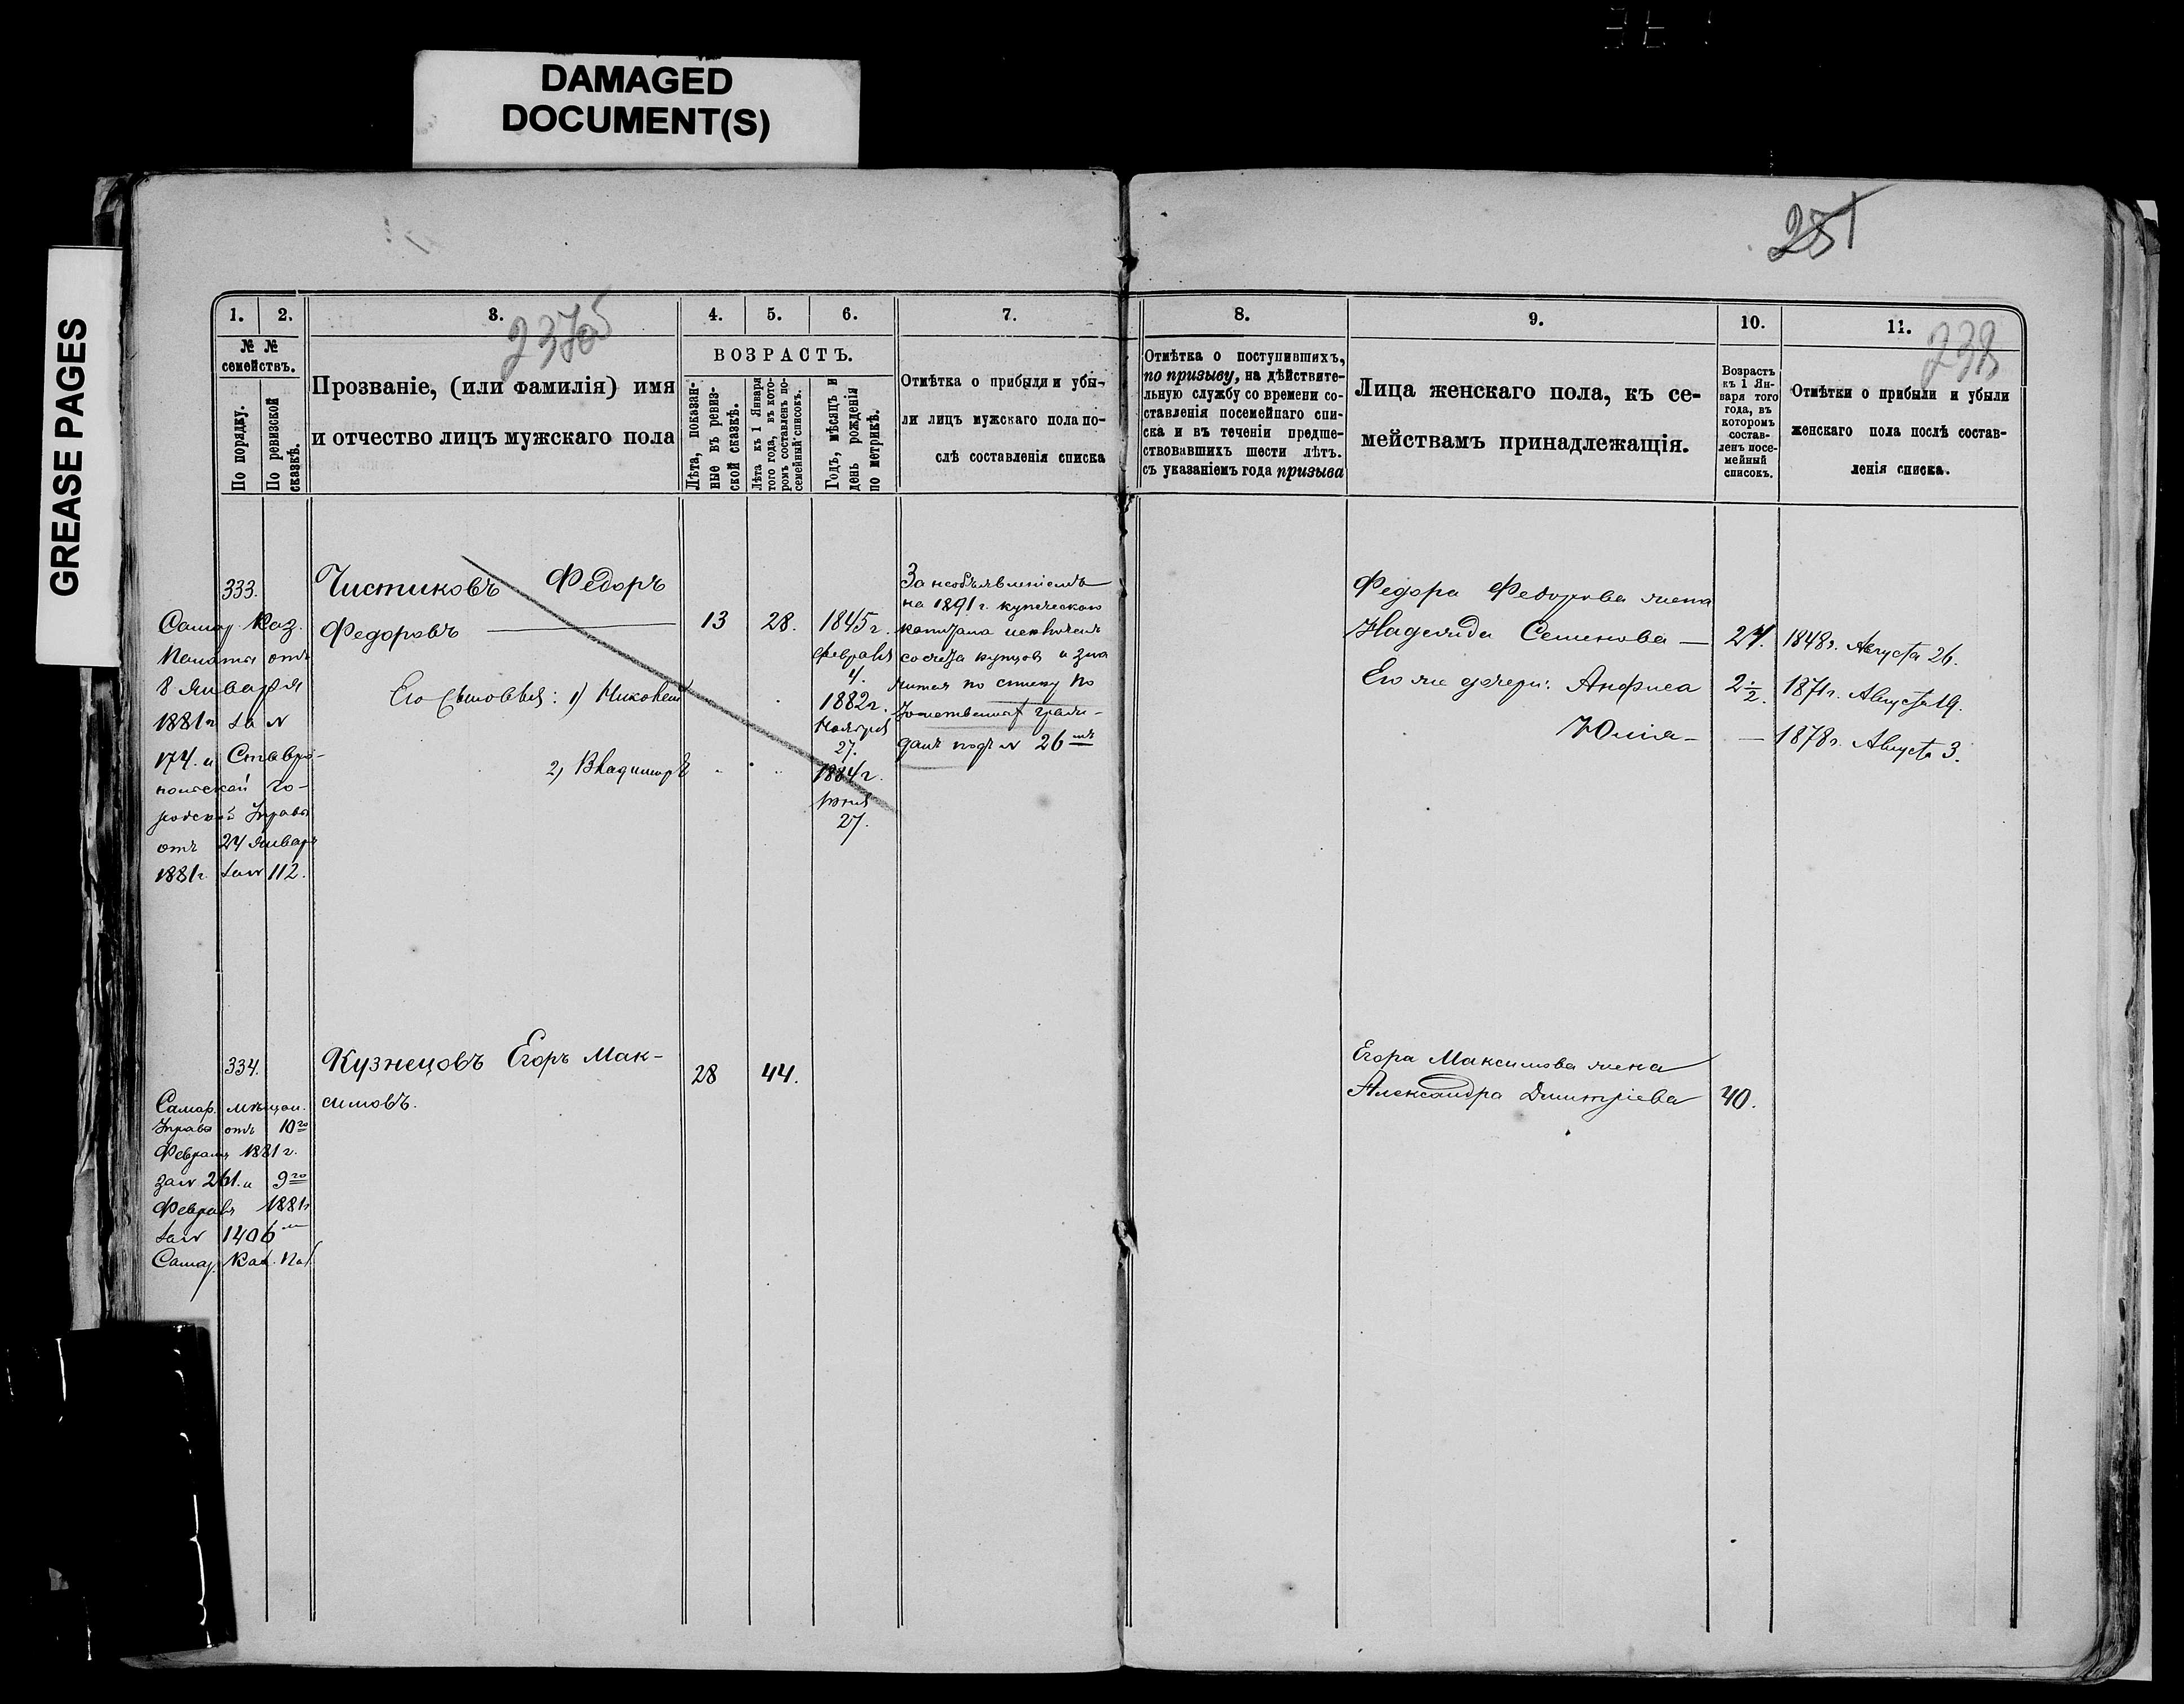 DAMAGED
DOCUMENT(S)
GREASE PAGES
251
1. 2. 3. 4. 5. 6. 7.
237об
№ №
семействъ.
По порядку.
По ревизской
сказкѣ.
Прозваніе, (или фамилія) имя
и отчество лицъ мужскаго пола
ВОЗРАСТЪ.
Лѣта, показан-
ные въ ревиз-
ской сказкѣ.
Лѣта къ 1 Января
того года, въ кото-
ромъ составленъ по-
семейный списокъ.
Годъ, мѣсяцъ и
день рожденія
по метрикѣ.
Отмѣтка о прибыли и убы-
ли лицъ мужскаго пола по-
слѣ составленія списка
333.
Самар. Каз.
Палаты отъ
8 Января
1881 г. за №
174. и Ставро-
польской Го-
родской Управы
отъ 24 Января
1881 г. за № 112.
Чистиковъ Федоръ
Федоровъ 13 28. 1845 г.
Февраля
4.
Его сыновья: 1) Николай 1882 г.
Ноября
27.
2) Владиміръ 1884 г.
Іюня
27.
За необъявленіемъ
на 1891 г. купеческаго
капитала исключенъ
со счета купцовъ и зна
чится по списку По
чотственныхъ граж-
данъ подъ № 26 мъ
334.
Самар. мѣщан.
Управы отъ 10 го
Февраля 1881 г.
за № 261. и 9 го
Февраля 1881 г.
за № 1406
Самар. Каз. Пал.
Кузнецовъ Егоръ Мак- 28 44.
симовъ.
8. 9. 10. 11.
238
Отмѣтка о поступившихъ,
по призыву, на дѣйствите-
льную службу со времени со-
ставленія посемейнаго спи-
ска и въ теченіи предше-
ствовавшихъ шести лѣтъ.
съ указаніемъ года призыва
Лица женскаго пола, къ се-
мействамъ принадлежащія.
Возрастъ
къ 1 Ян-
варя того
года, въ
которомъ
состав-
ленъ посе-
мейный
списокъ.
Отмѣтки о прибыли и убыли
женскаго пола послѣ состав-
ленія списка.
Федора Федорова жена
Надежда Семенова — 24. 1848 г. Августа 26.
Его же дочери: Анфиса 2 1/2. 1871 г. Августа 19.
Юлія — — 1878 г. Августа 3.
Егора Максимова жена
Александра Дмитріева 40.